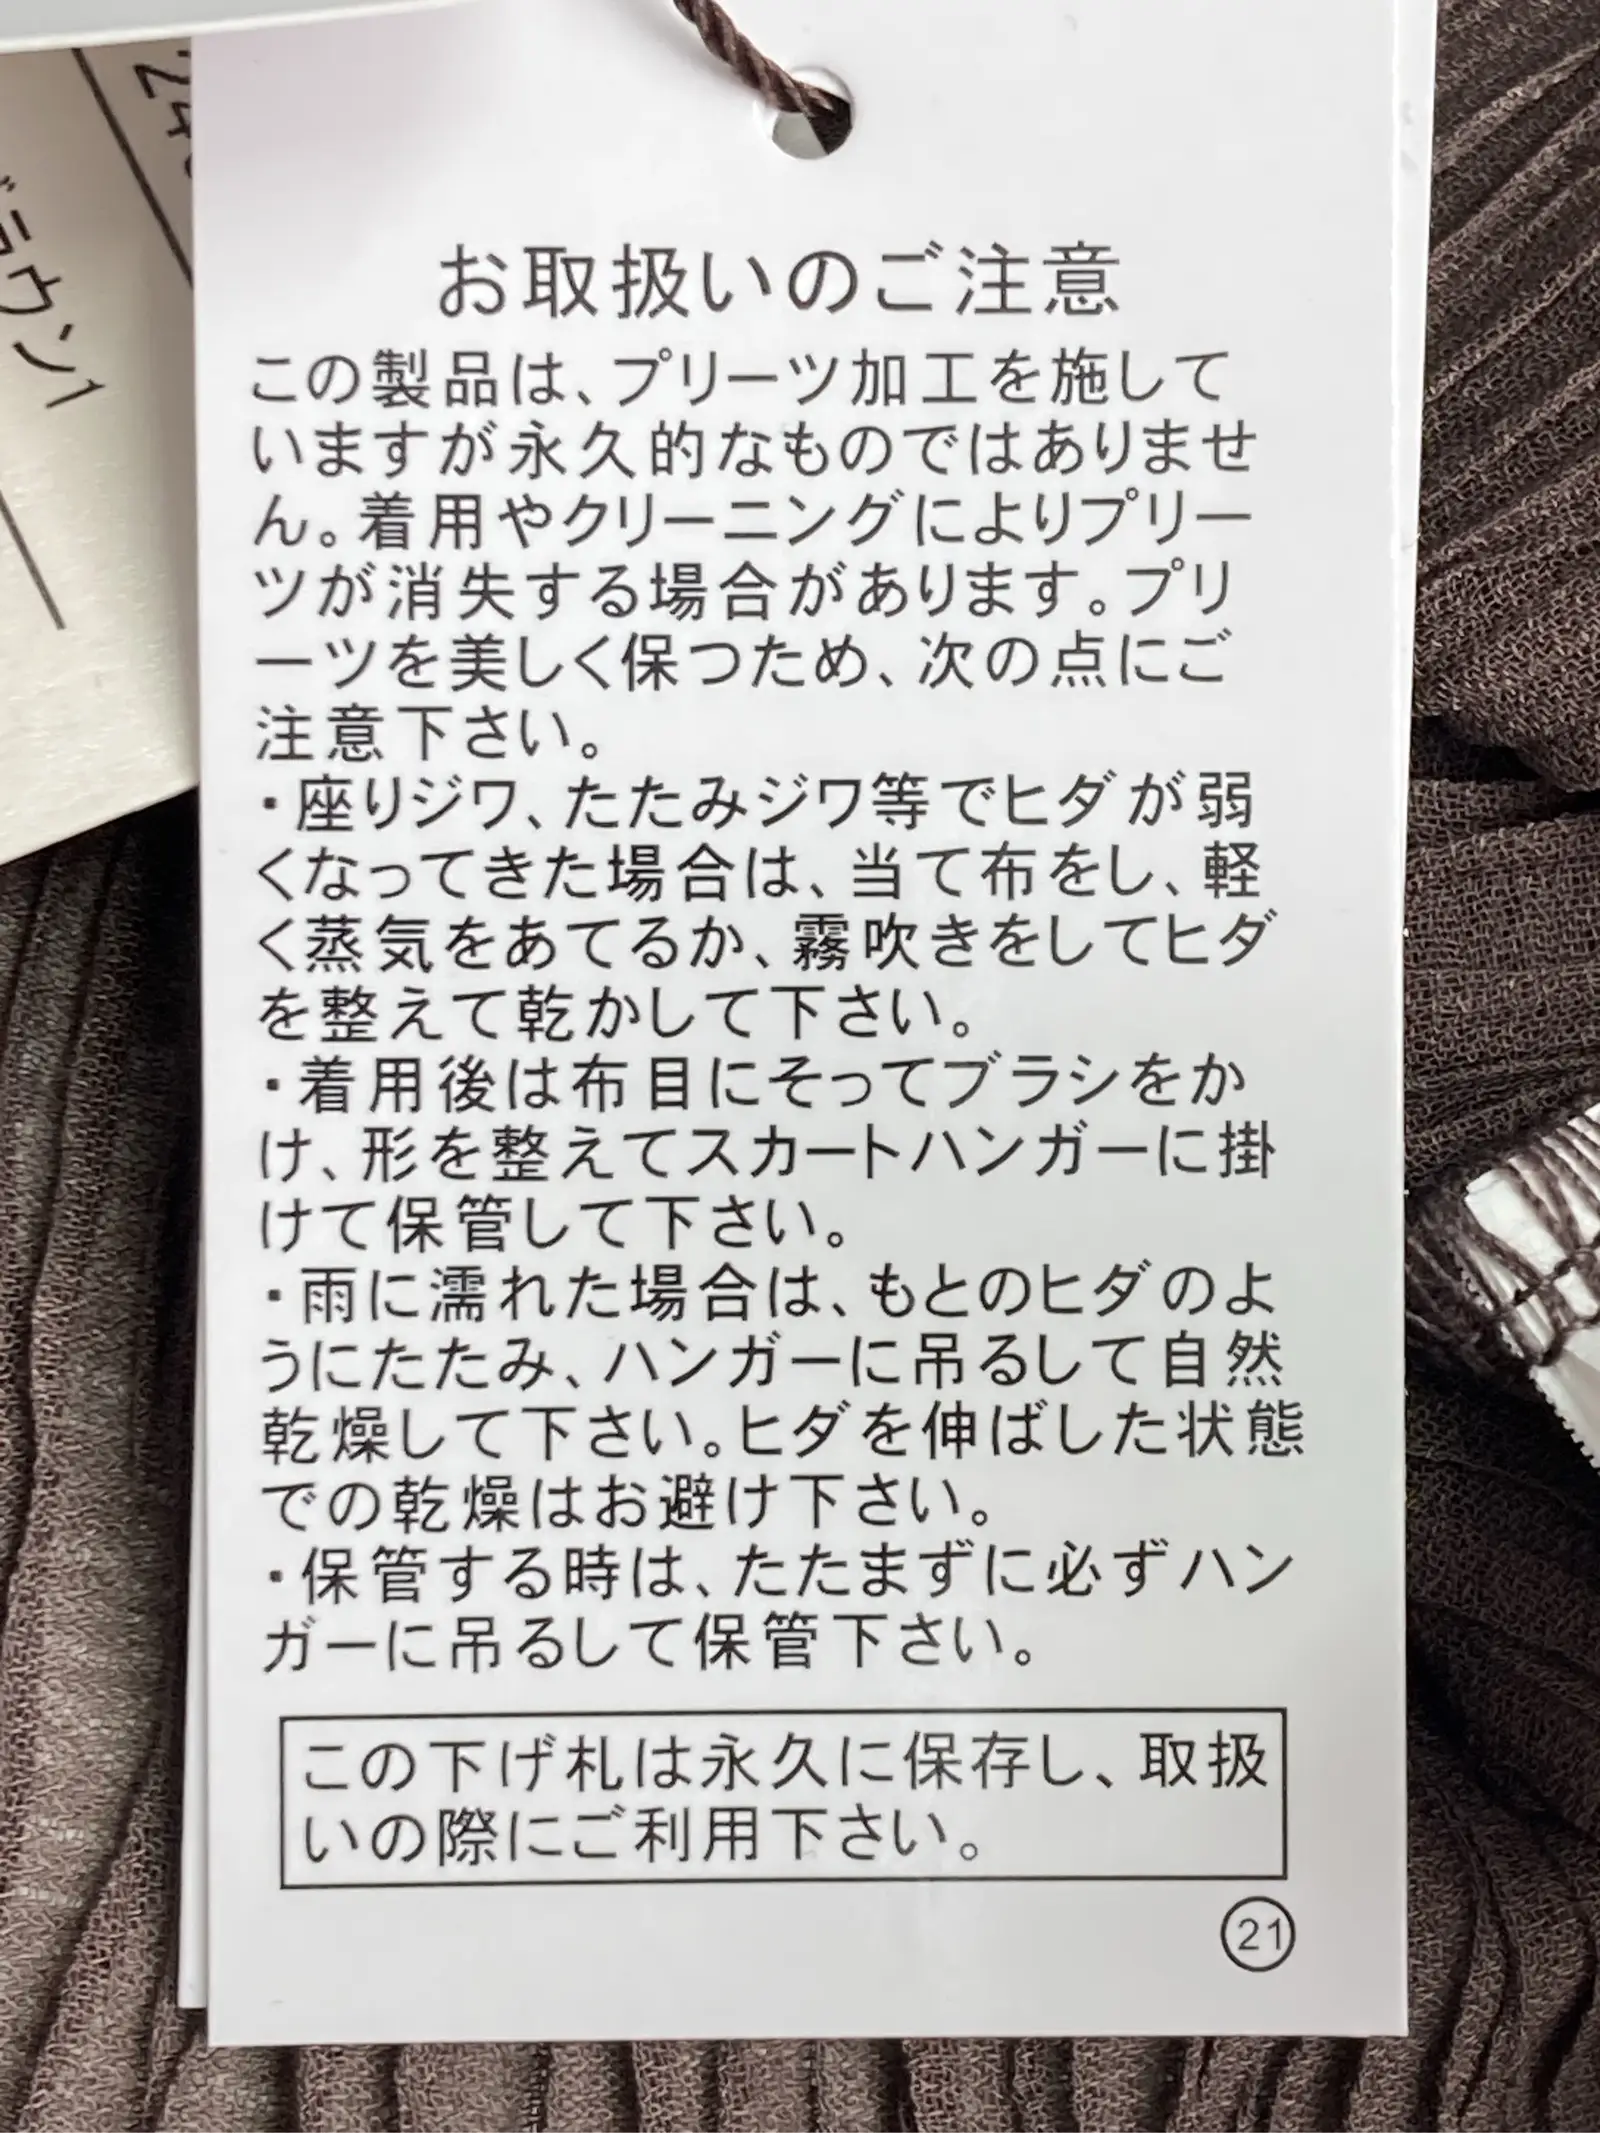 お取扱いのご注意
この製品は、プリーツ加工を施して
いますが永久的なものではありませ
ん。着用やクリーニングによりプリー
ツが消失する場合があります。プリ
ーツを美しく保つため、次の点にご
注意下さい。
・座りジワ、たたみジワ等でヒダが弱
くなってきた場合は、当て布をし、軽
く蒸気をあてるか、霧吹きをしてヒダ
を整えて乾かして下さい。
・着用後は布目にそってブラシをか
け、形を整えてスカートハンガーに掛
けて保管して下さい。
・雨に濡れた場合は、もとのヒダのよ
うにたたみ、ハンガーに吊るして自然
乾燥して下さい。ヒダを伸ばした状態
での乾燥はお避け下さい。
・保管する時は、たたまずに必ずハン
ガーに吊るして保管下さい。
この下げ札は永久に保存し、取扱
いの際にご利用下さい。
21
ブラウン1